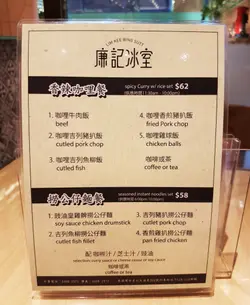 LIM KEE BING SUTT
廉記冰室
香辣咖喱餐
spicy Curry w/ rice set $62
(11:30am - 10:00pm)
1. 咖喱牛肉飯
beef
2. 咖喱吉列豬扒飯
cutled pork chop
3. 咖喱吉列魚柳飯
cutlet fish
4. 咖喱香煎豬扒飯
fried Pork chop
5. 咖喱雞球飯
chicken balls
咖啡或茶
coffee or tea
撈公仔麵餐
seasoned instant noodles set $58
1. 豉油皇雞髀撈公仔麵
soy sauce chicken drumstick
2. 吉列魚柳撈公仔麵
cutlet fish fillet
3. 吉列豬扒撈公仔麵
cutled pork chop
4. 香煎雞扒撈公仔麵
pan fried chicken
配 咖喱汁 / 芝士汁 / 豉油
selection: curry sauce or cheese sauce of soy sauce
咖啡或茶
coffee or tea